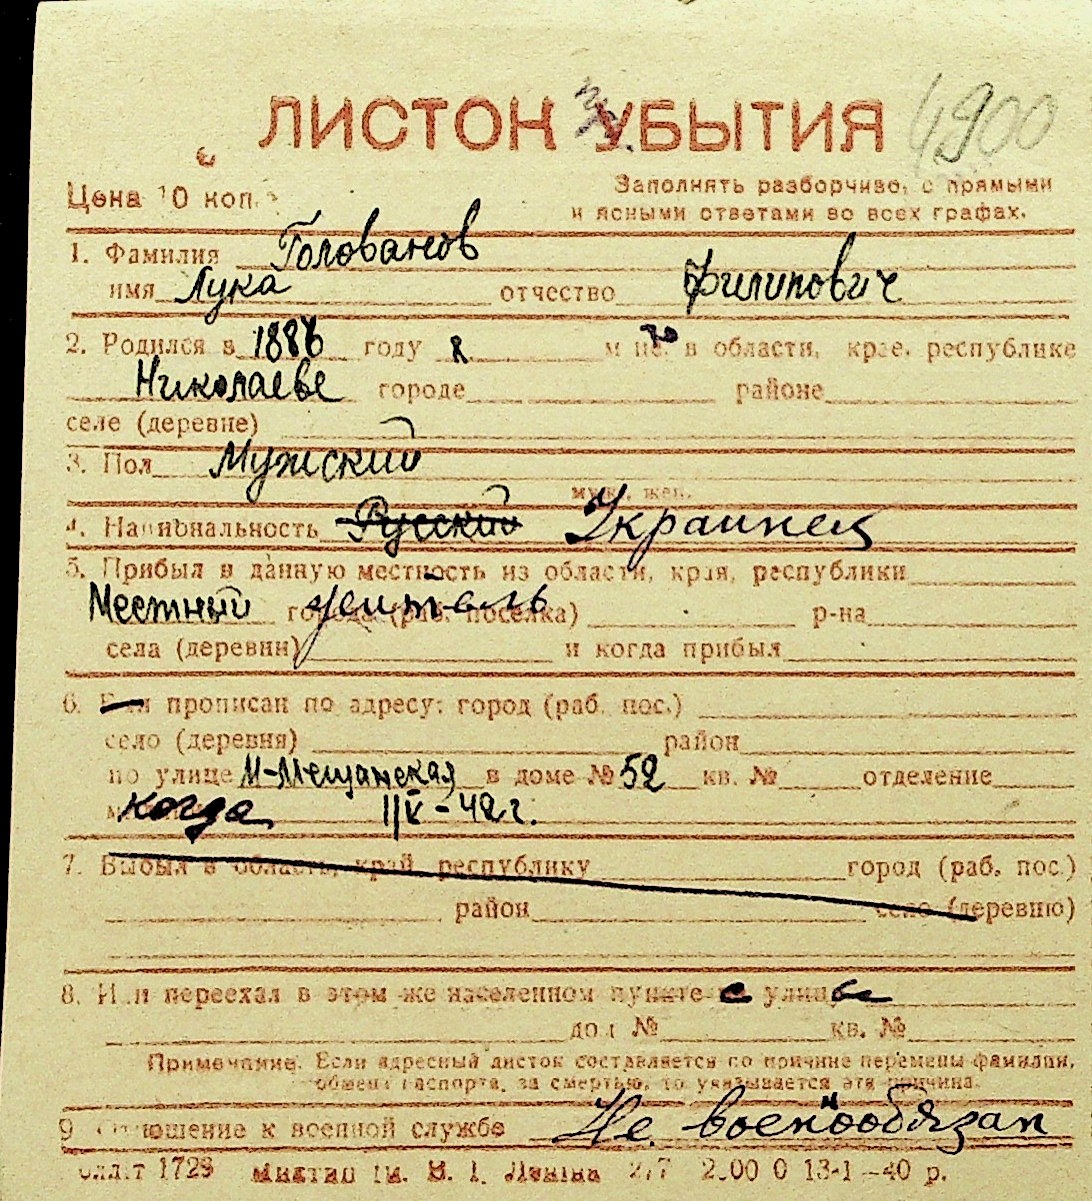 ЛИСТОК УБЫТИЯ 4900
Цена 10 коп.
Заполнять разборчиво, с прямыми
и ясными ответами во всех графах.
1. Фамилия Голованов
имя Лука отчество Филипович
2. Родился в году в области, крае, республике
Николаеве городе районе
селе (деревне)
3. Пол Мужский
муж. жен.
4. Национальность Русский Украинец
5. Прибыл в данную местность из области, края, республики
Местный житель города (раб. поселка) р-на
села (деревни) и когда прибыл
6. Был прописан по адресу: город (раб. пос.)
село (деревня) район
по улице М-Мещанская в доме № 52 кв. № отделение
когда 11/V-42 г.
7. Выбыл в область, край республику город (раб. пос.)
район село (деревню)
8. Или переехал в этом же населенном пункте улицы
дом № кв. №
Примечание. Если адресный листок составляется по причине перемены фамилии,
обмена паспорта, за смертью, то указывается эта причина.
9 Отношение к военной службе Не военнообязан
1729 В. І. Леніна 2,7 13-1-40 р.